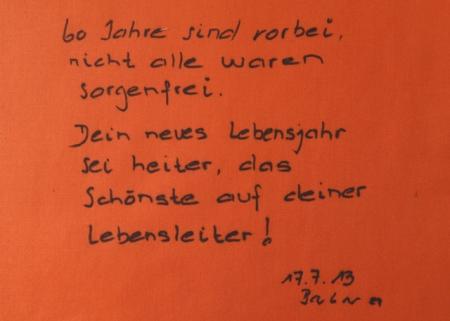 60 Jahre sind vorbei,
nicht alle waren
sorgenfrei.
Dein neues Lebensjahr
sei heiter, das
Schönste auf deiner
Lebensleiter!
17.7.13